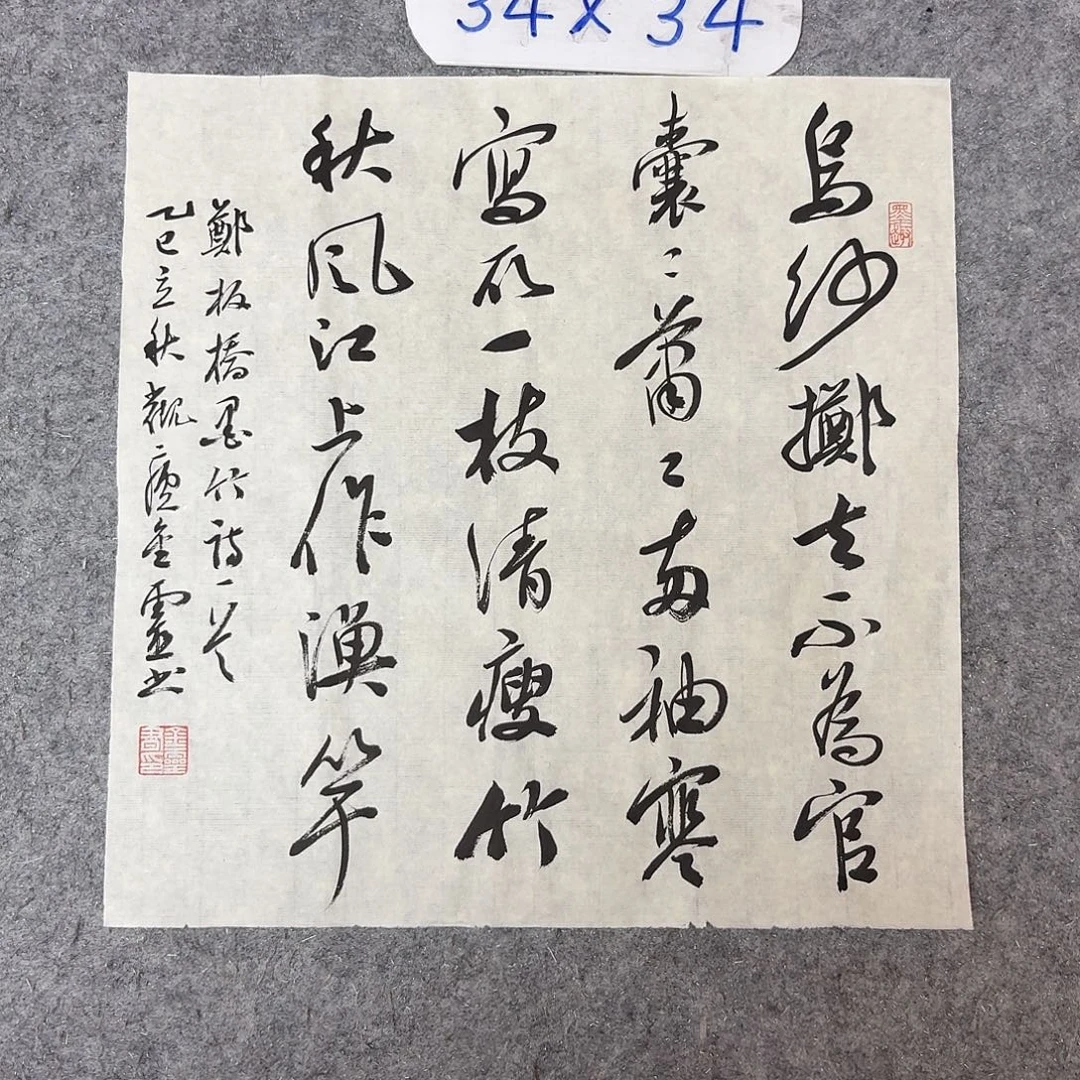 34 x 34
烏紗擲去不為官
囊〻蕭〻两袖寒
寫取一枝清瘦竹
秋風江上作漁竿
鄭板橋墨竹詩一首
乙巳立秋觀金靈书